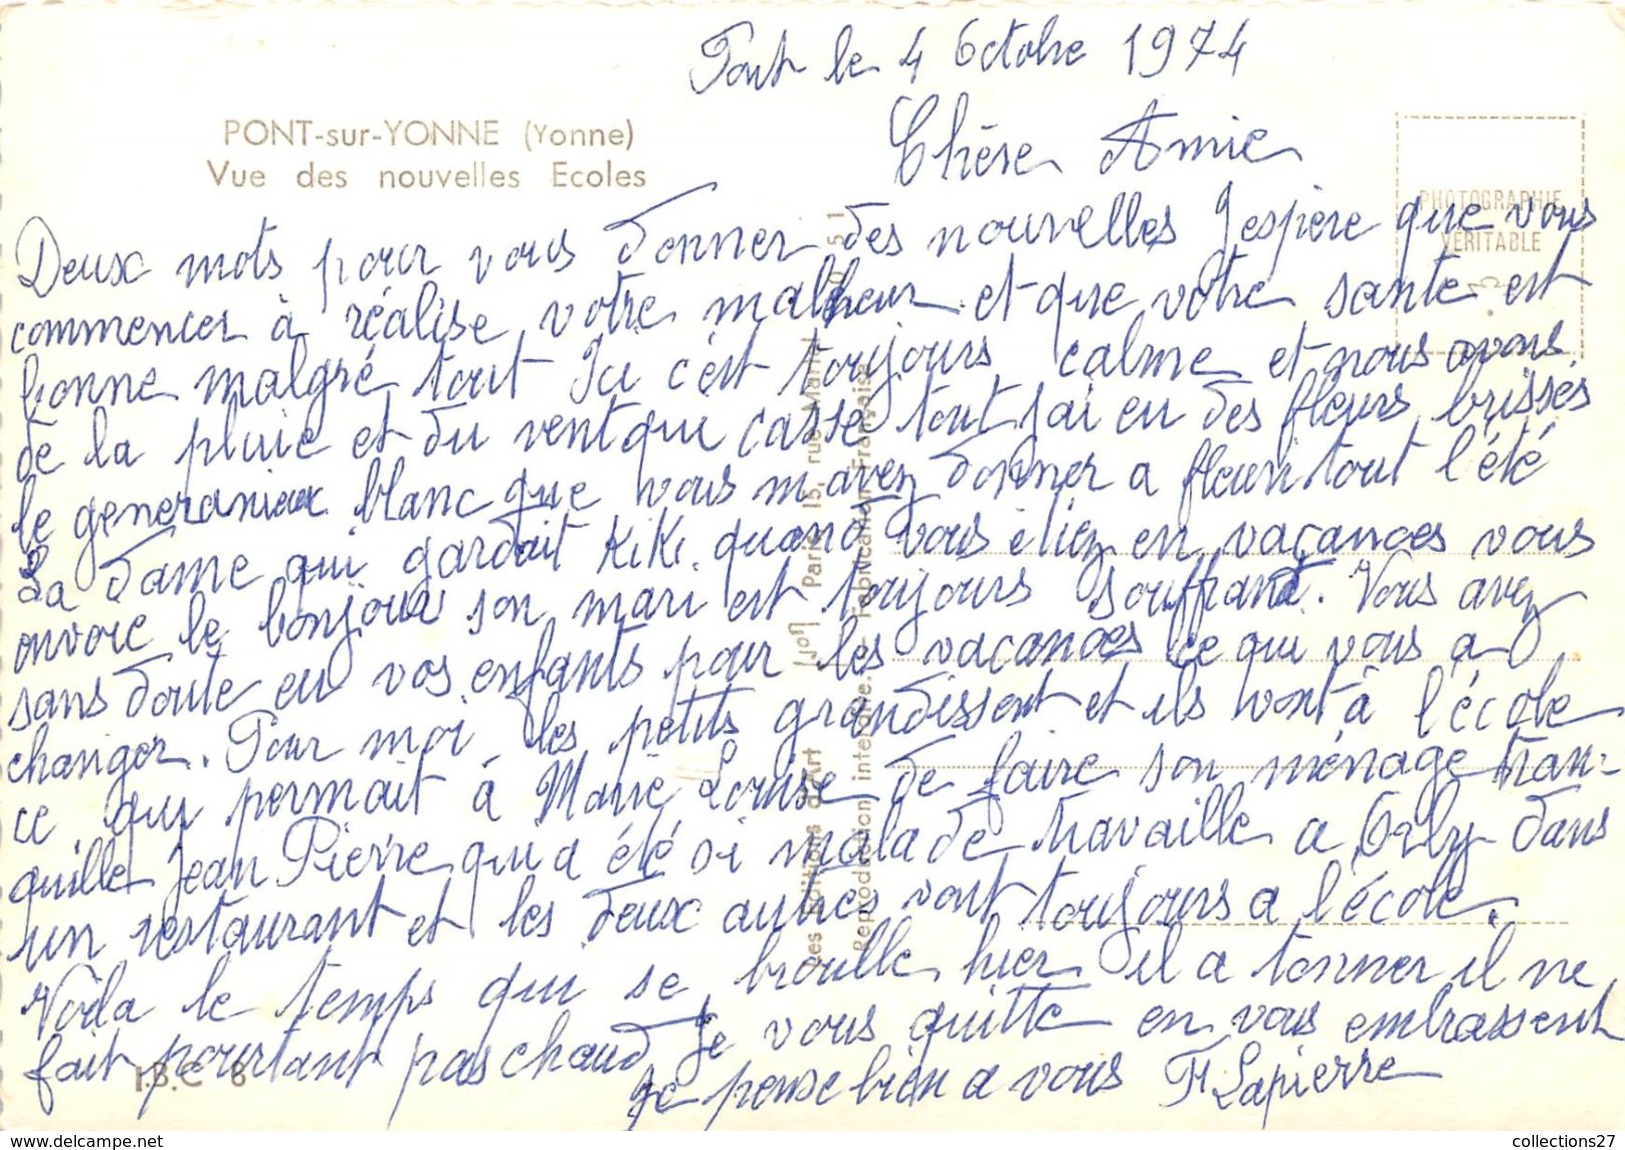 Pont le 4 Octobre 1974
PONT-sur-YONNE (Yonne)
Vue des nouvelles Ecoles
PHOTOGRAPHIE
VÉRITABLE
Chère Amie
Deux mots pour vous donner des nouvelles J'espère que vous
commencer à réalise votre malheur et que votre santé est
bonne malgré tout Ici c'est toujours calme et nous avons
de la pluie et du vent qui casse tout j'ai eu des fleurs brisses
le generanieux blanc que vous m'avez donner a fleuri tout l'été
La dame qui gardait KiKi quand vous étiez en vacances vous
onvoie le bonjour son mari est toujours souffrant. Vous avez
sans doute eu vos enfants pour les vacances ce qui vous a
changer. Pour moi les petits grandissent et ils vont à l'école
ce qui permait à Marie Louise de faire son ménage tran-
quille Jean Pierre qui a été si malade travaille a Orly dans
un restaurant et les deux autres vont toujours a l'école.
Voila le temps qui se brouille hier il a tonner il ne
fait pourtant pas chaud Je vous quitte en vous embrassent
Je pense bien a vous F Lapierre
Les Editions d'Art Paris 15, rue Martel
Reproduction interdite. - Fabrication Française
I.B.C 8
collections27